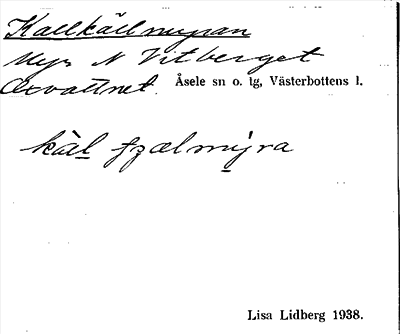 Kallkällmyran
Myr N Vitberget
Orvattnet. Åsele sn o. tg, Västerbottens l.
kàl fzælmýra
Lisa Lidberg 1938.